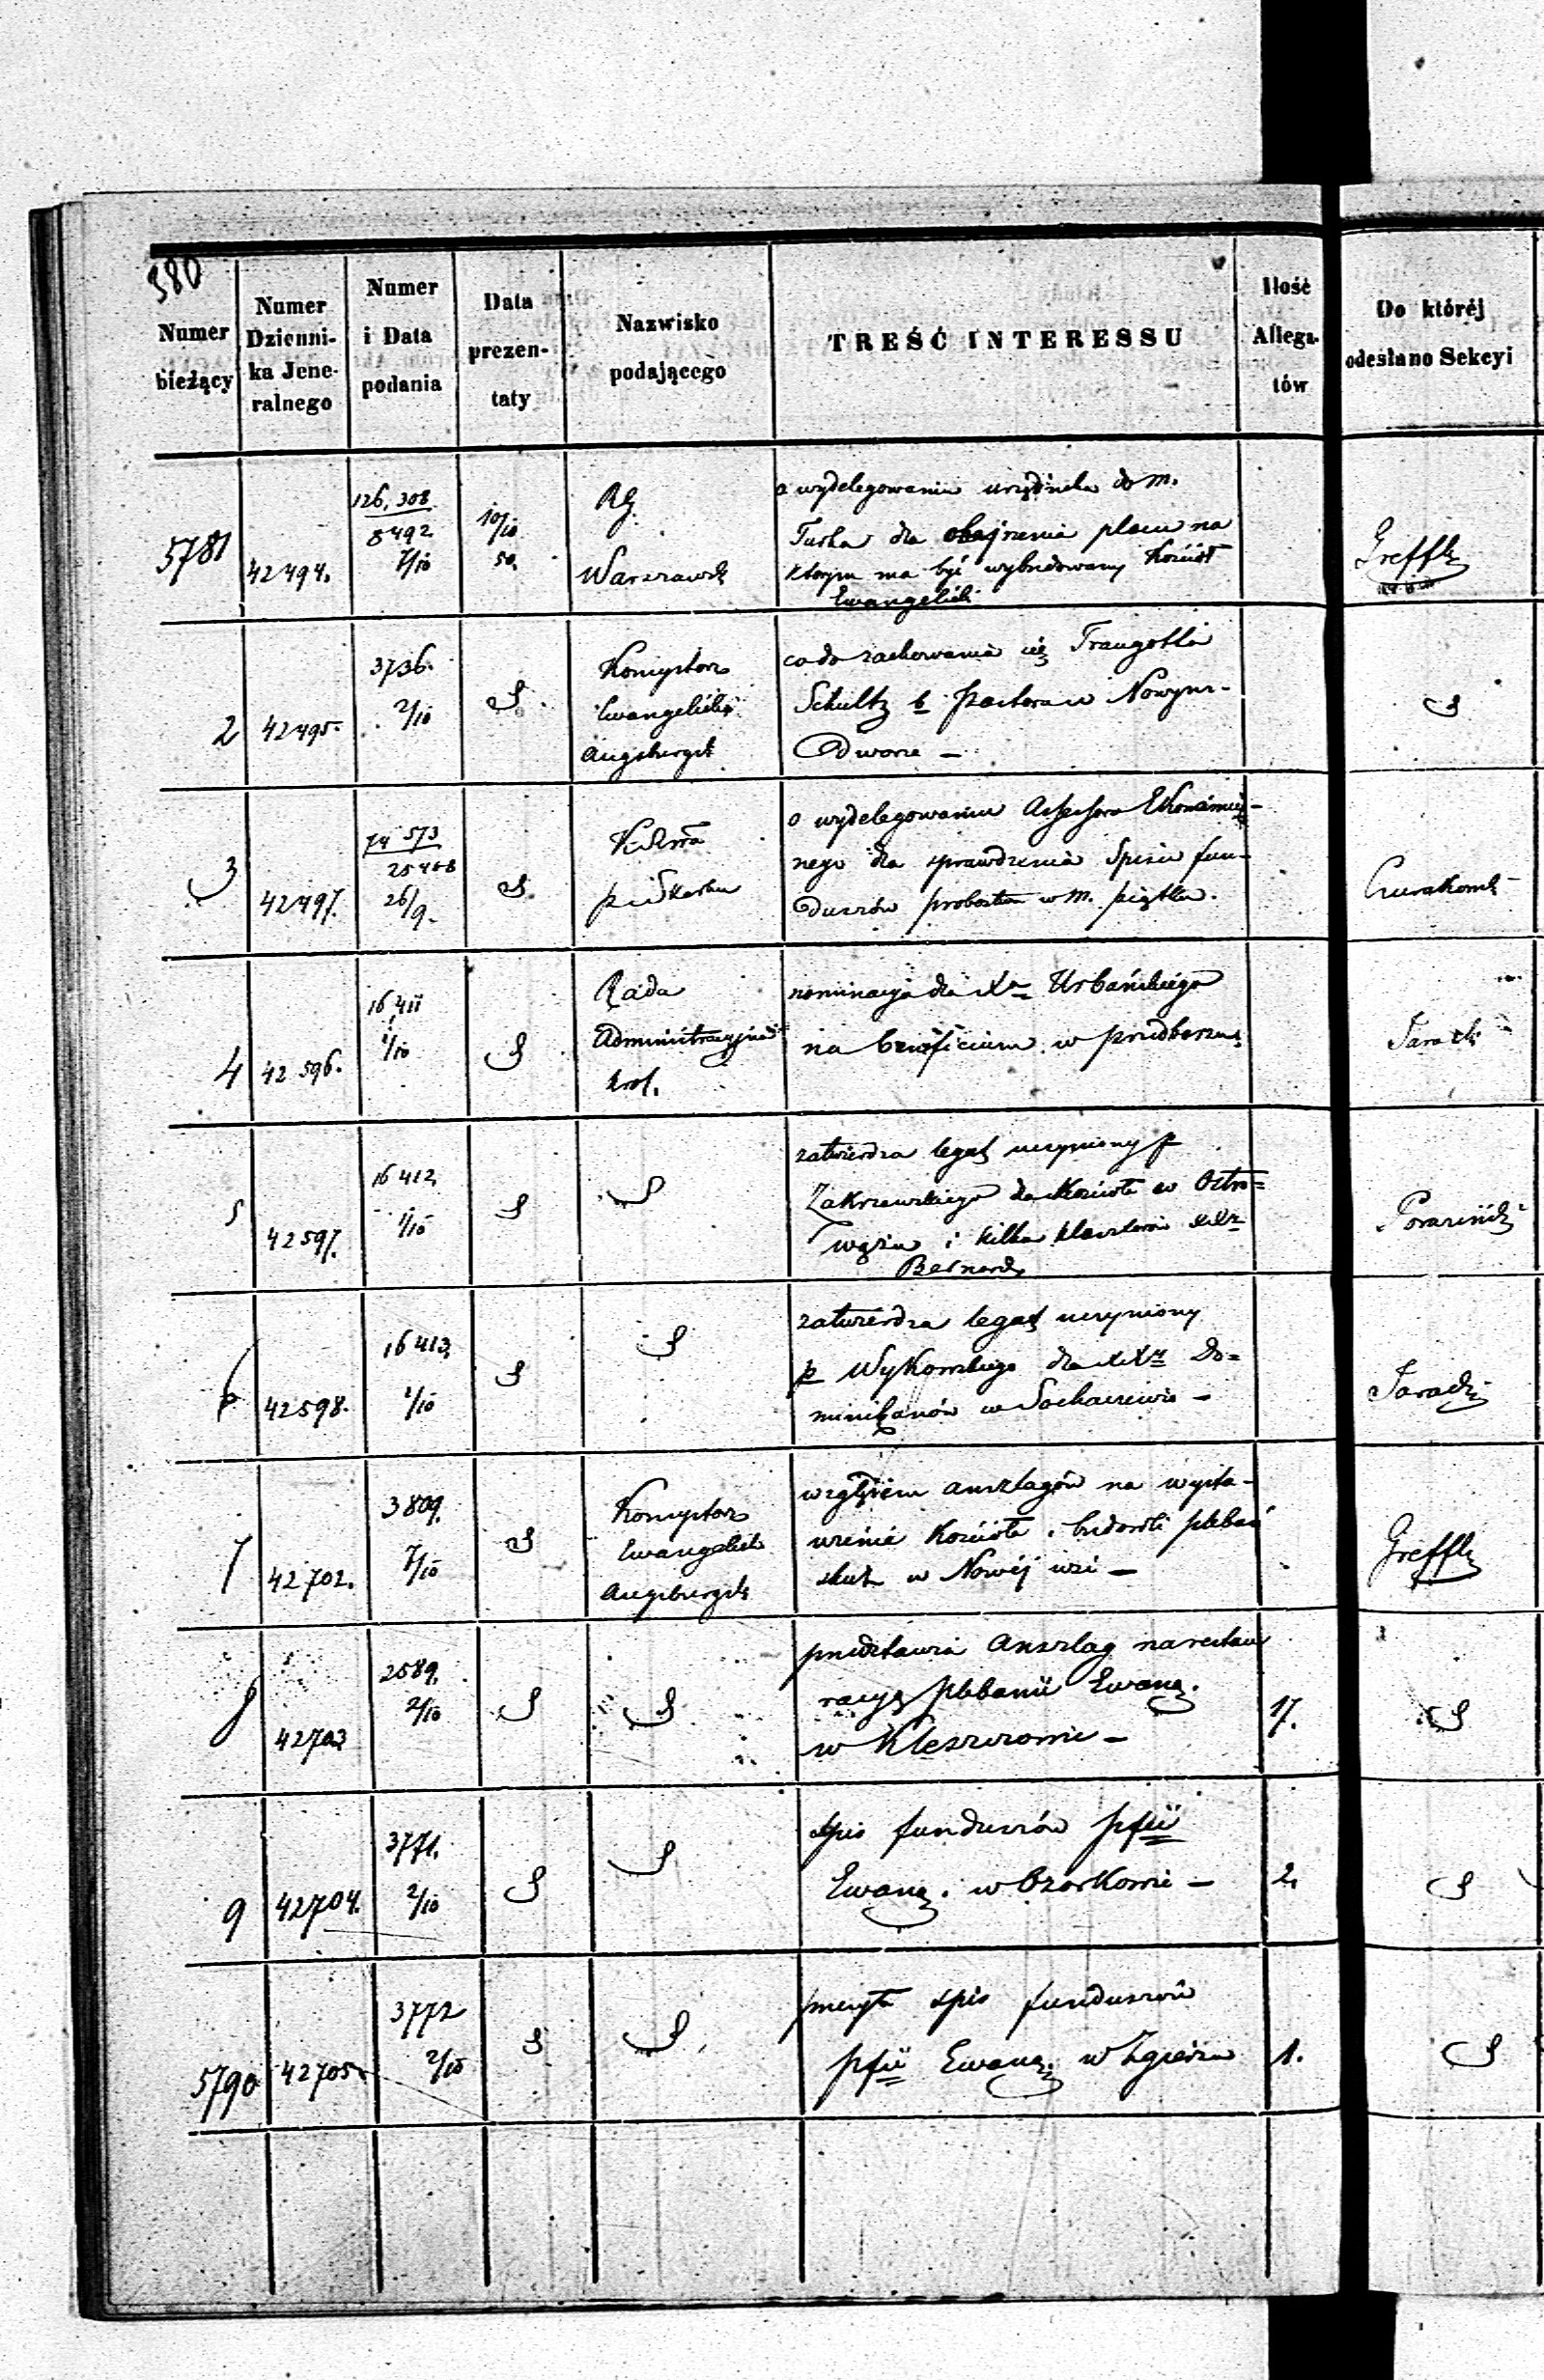 380
Numer
bieżący
Numer
Dzienni-
ka Jene-
ralnego
Numer
i Data
podania
Data
prezen-
taty
Nazwisko
podającego
TREŚĆ INTERESSU
Ilość
Allega-
tów
Do któréj
odesłano Sekcyi
5781
42494.
126,308
8492
7/10
10/10
50.
RG.
Warszawsk
o wydelegowanie urzędnika do m.
Turka dla obejrzenia placu na
którym ma być wybudowany Kościół
Ewangelick
Greffk
2
42495
3736.
2/10
Konsystorz
Ewangelicko
Augsburgsk
co do zachowania się Traugotta
Schultz b Pastora w Nowym-
Dworze —
3
42497.
74 573
25408
26/9.
Skarbu
o wydelegowanie Assessora Ekonomicz-
nego dla sprawdzenia Spisu fun-
duszów probostwa w m. Piątku.
4
42 596.
16,411
1/10
Rada
Administracyjna
Krol.
nominacya dla Xa Urbańskiego
na beneficium w Przedborzu
5
42597.
16 412
1/10
zatwierdza legat uczyniony p
Zakrzewskiego dla Kościoła w Ostro-
wążu i kilku klasztorów XXz
Bernard
6
42598.
16 413
1/10
zatwierdza legat uczyniony
p Wykowskiego dla XXw Do-
minikanów w Sochaczewie —
7
42702.
3809.
7/10
Konsystorz
Ewangelick
Augsburgsk
względem anszlagów na wysta-
wienie Kościoła i budowli pleban
skich w Nowéj wsi —
Greffk
8
42703
2589.
2/10
przedstawia Anszlag na restau
racyę plebanii Ewang.
w Kleszczowie —
17.
9
42704.
3771.
2/10
Spis funduszów pfii
Ewang. w Ozorkowie —
2.
5790
42705
3772
2/10
przesyła spis funduszów
pfii Ewang. w Zgierzu
1.